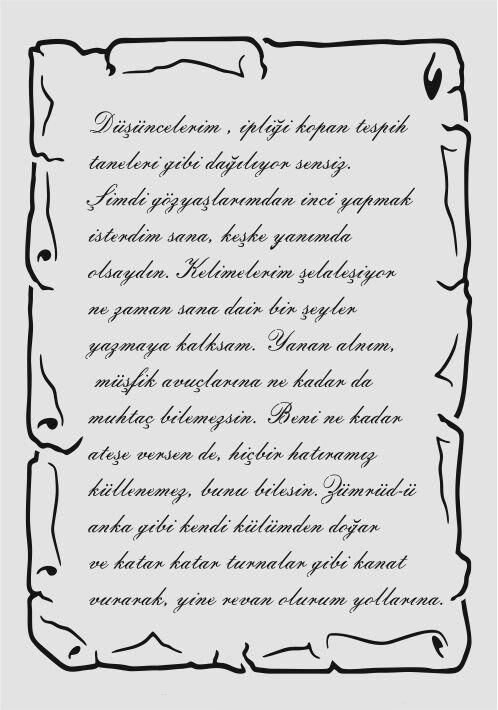 Düşüncelerim , ipliği kopan tespih
taneleri gibi dağılıyor sensiz.
Şimdi gözyaşlarımdan inci yapmak
isterdim sana, keşke yanımda
olsaydın. Kelimelerim şelaleşiyor
ne zaman sana dair bir şeyler
yazmaya kalksam. Yanan alnım,
müşfik avuçlarına ne kadar da
muhtaç bilemezsin. Beni ne kadar
ateşe versen de, hiçbir hatıramız
küllenemez, bunu bilesin. Zümrüd-ü
anka gibi kendi külümden doğar
ve katar katar turnalar gibi kanat
vurarak, yine revan olurum yollarına.